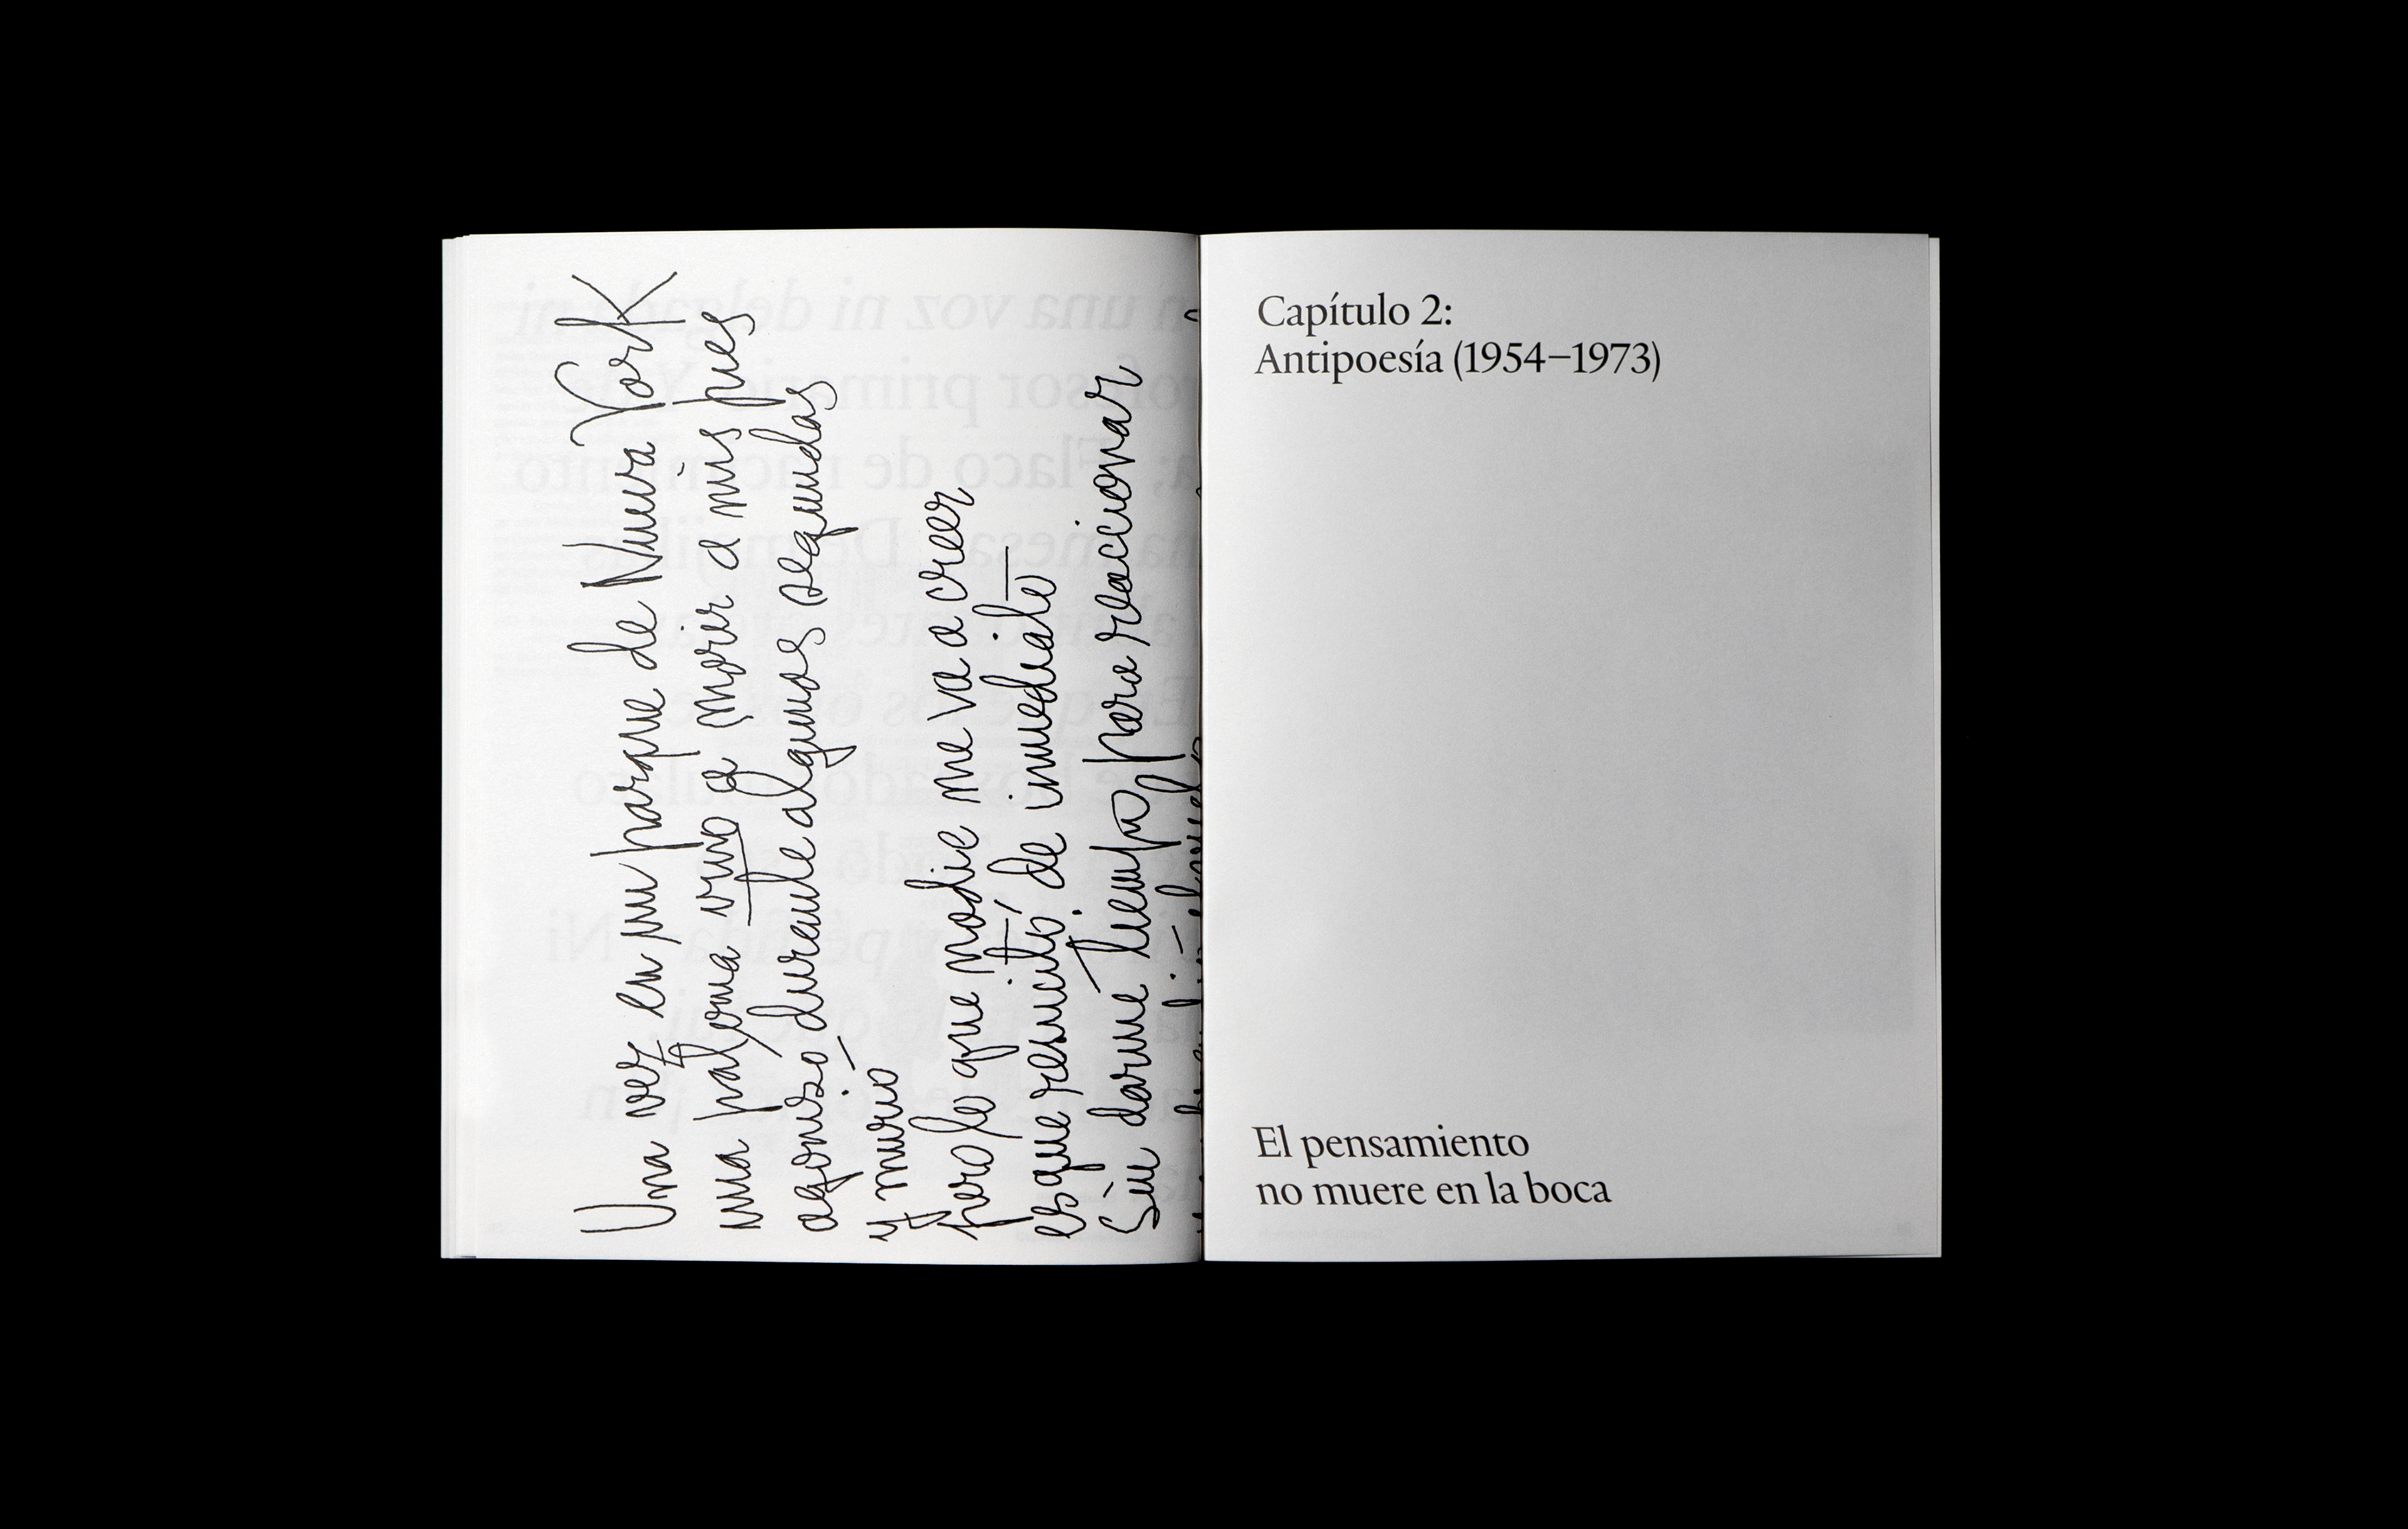 Una vez en un parque de Nueva York
una paloma vino a morir a mis pies
agonizó durante algunos segundos
y murió
pero lo que nadie me va a creer
es que resucitó de inmediato
Sin darme tiempo para reaccionar
Capítulo 2:
Antipoesía (1954–1973)
El pensamiento
no muere en la boca